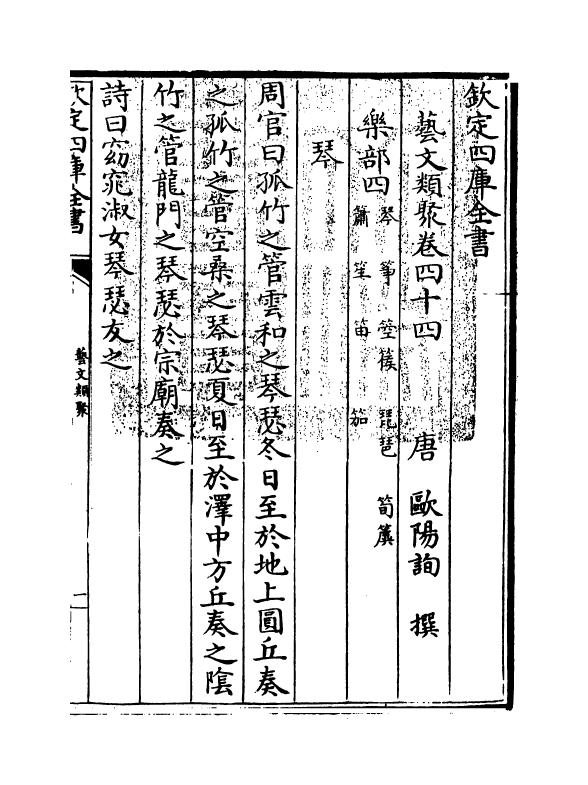 欽定四庫全書
藝文類聚卷四十四　唐　歐陽詢　撰
樂部四　琴　箏　箜篌　琵琶　筍簴
簫　笙　笛　笳
琴
周官曰孤竹之管雲和之琴瑟冬日至於地上圓丘奏
之孤竹之管空桑之琴瑟夏日至於澤中方丘奏之隂
竹之管龍門之琴瑟於宗廟奏之
詩曰窈窕淑女琴瑟友之
欽定四庫全書
藝文類聚